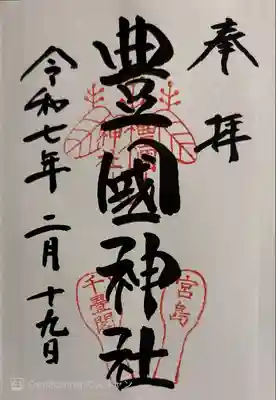 奉拝
豊國神社
令和七年 二月 十九日
宮島
千畳閣